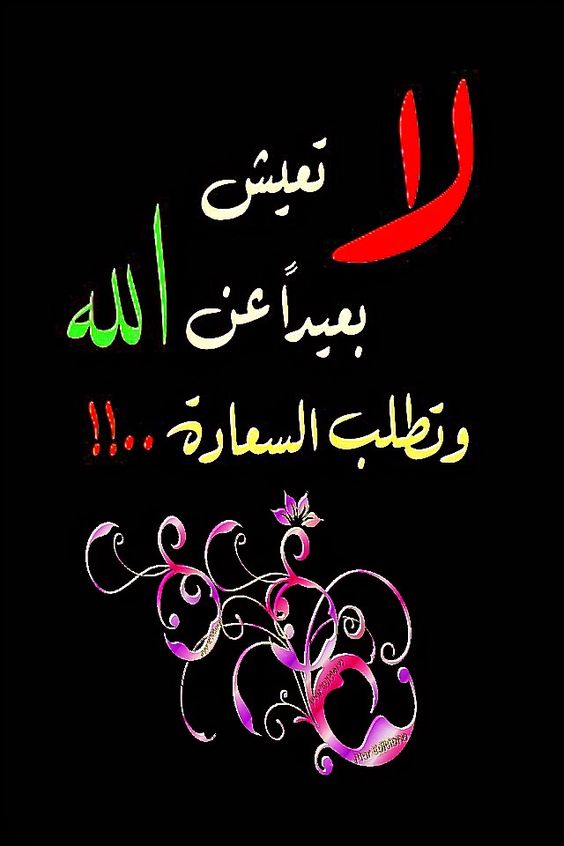 لا تعيش
بعيداً عن الله
وتطلب السعادة ..!!